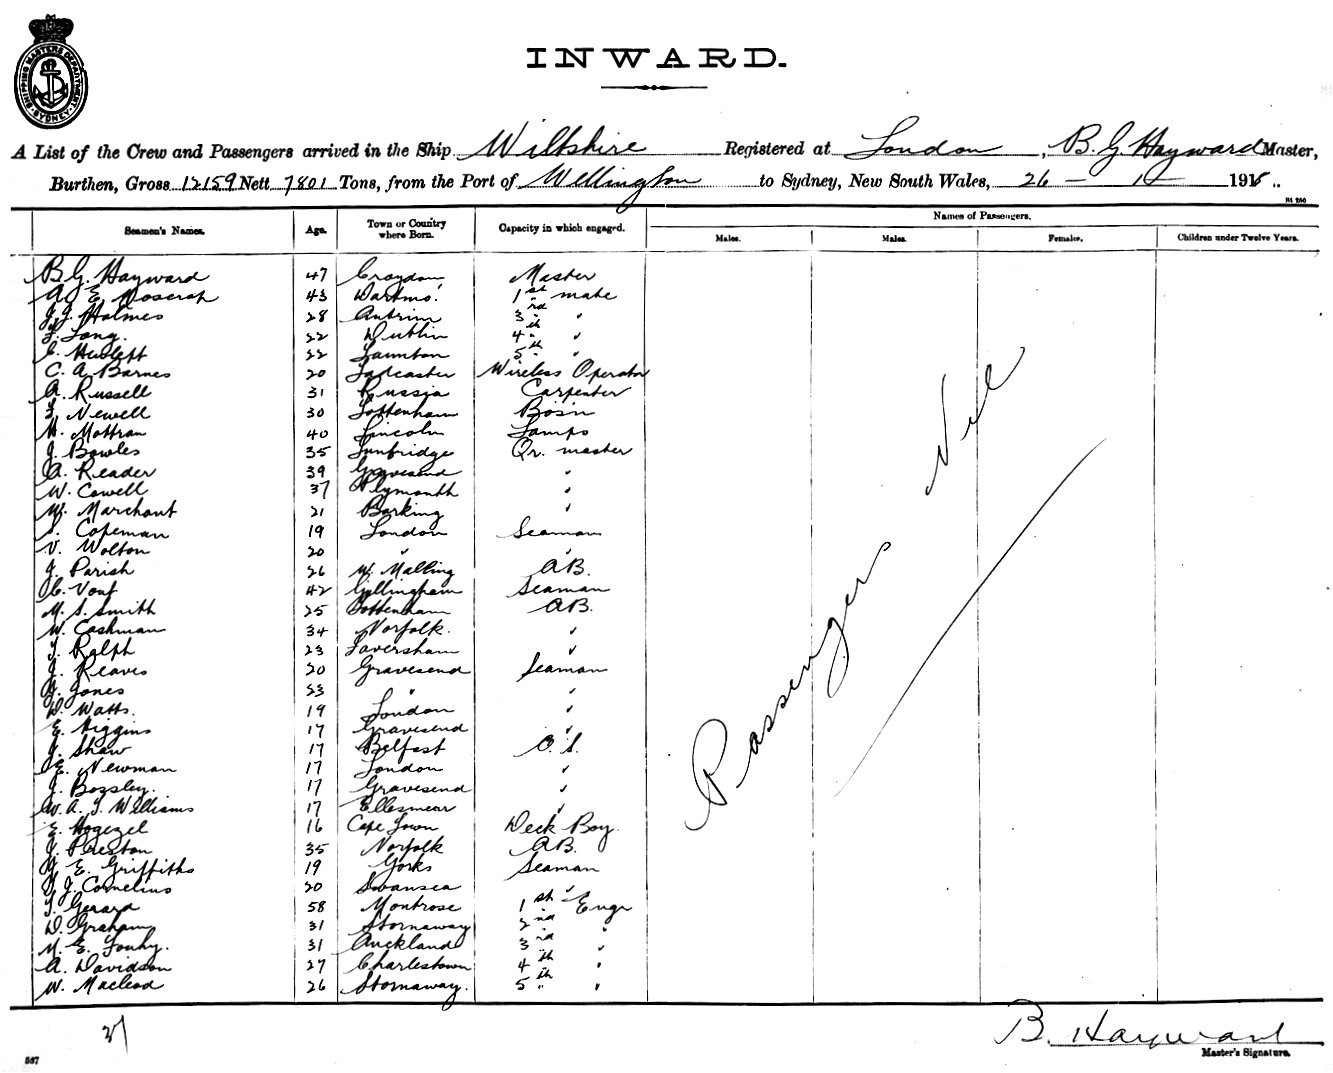 SHIPPING MASTERS DEPARTMENT SYDNEY
INWARD.
A List of the Crew and Passengers arrived in the Ship Wiltshire Registered at London, B. G Hayward Master,
Burthen, Gross 12159 Nett 7801 Tons, from the Port of Wellington to Sydney, New South Wales, 26 – 1 – 191
Names of Passengers.
Seamen's Names. Age. Town or Country where Born. Capacity in which engaged. Males. Males. Females. Children under Twelve Years.
B. G. Hayward 47 Croydon Master
A. E. 43 Dartmo. 1st mate
J. J. Holmes 28 Antrim 3rd "
F. Long. 22 Dublin 4th "
E. Hewlett 22 Taunton 5th "
C. A Barnes 20 Tadcaster Wireless Operator
A. Russell 31 Russia Carpenter
F. Newell 30 Tottenham Bosn
H. Mottran 40 Lincoln Lamps
J. Bowles 35 Tunbridge Qr. master
A. Reader 39 Gravesend "
W. Cowell 37 Plymouth "
W. Marchant 21 Barking "
Copeman 19 London Seaman
V. Wolton 20 " "
J. Parish 26 W. Malling AB.
C. 42 Gillingham Seaman
M. S. Smith 25 Tottenham AB.
W. Cashman 34 Norfolk. "
T. Ralph 23 Faversham "
J. Reaves 20 Gravesend Seaman
J. Jones 23 " "
D. Watts. 19 London "
E. Higgins 17 Gravesend "
J. Shaw 17 Belfast O. S.
E. Newman 17 London "
J. Bozsley. 17 Gravesend "
W. A. J. Williams 17 Ellesmear "
E. Hogezel 16 Cape Town Deck Boy.
J. Preston 35 Norfolk AB.
E. Griffiths 19 Yorks Seaman
J. Cornelius 20 Swansea "
T. Gerard 58 Montrose 1st Engr
D. Graham 31 Stornaway 2nd "
E. 31 Auckland 3rd "
A. Davidson 27 Charlestown 4th "
W. Macleod 26 Stornaway. 5th "
Passengers Nil
B. Hayward
Master's Signature.
587